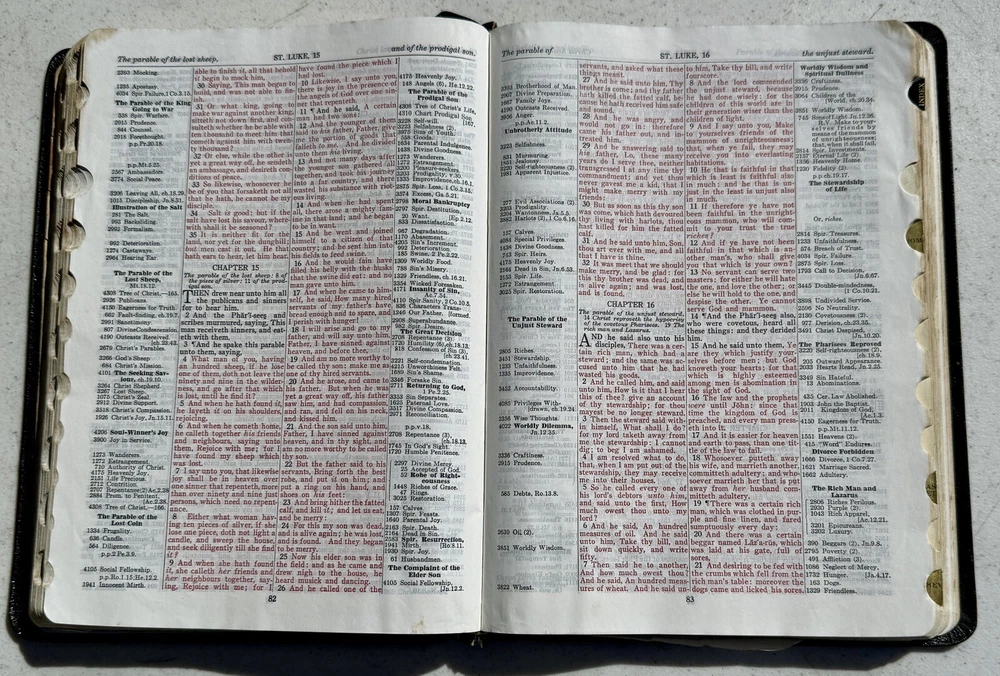 The parable of the lost sheep.
ST. LUKE, 15
and of the prodigal son.
2363 Mocking.
1235 Apostasy.
4034 Spir. Failure, 1 Co.3.15.
The Parable of the King
Going to War
358 Spir. Warfare.
2915 Prudence.
844 Counsel.
2918 Forethought.
p.p.Pr.20.18.
p.p.Mt.5.25.
2567 Ambassadors.
3774 Social Peace.
3206 Leaving All, ch.18.29.
1015 Discipleship, Jn.8.31.
Illustration of the Salt
281 The Salt.
963 Backsliding.
2993 Formalism.
992 Deterioration.
1274 Castaways.
2904 Hearing Ear.
The Parable of the
Lost Sheep,
Mt.18.12.
4308 Tree of Christ's Life—165.
2926 Publicans.
4150 Eagerness for Truth.
662 Fault-finding, ch.19.7.
2991 Sanctimony.
807 Divine Condescension.
4190 Outcasts Received.
2679 Christ's Parables.
3266 God's Sheep
684 Christ's Mission.
4101 The Seeking Saviour, ch.19.10.
3264 Christ Shepherd.
3267 Lost Sheep.
2912 Divine Support.
3518 Christ's Compassion.
2926 Christ's Joy, Jn.15.11.
4206 Soul-Winner's Joy
3900 Joy in Service.
1273 Wanderers.
1272 Estrangement.
710 Authority of Christ.
4175 Heavenly Joy.
2151 Life Precious.
2712 Contrition.
2707 Repentance
2884 Prom. to Penitent.
4308 Tree of Christ's Life—166.
The Parable of the
Lost Coin
1334 Frugality.
636 Candle.
564 Diligence.
p.p.2 Pe.3.9.
4105 Social Fellowship.
p.p.Ro.1.15; He.12.2.
1941 Innocent Mirth.
able to finish it, all that behold
it begin to mock him,
30 Saying, This man began to
build, and was not able to finish.
31 Or what king, going to
make war against another king,
sitteth not down first, and consulteth
whether he be able with
ten thousand to meet him that
cometh against him with twenty
thousand?
32 Or else, while the other is
yet a great way off, he sendeth
an ambassage, and desireth conditions
of peace.
33 So likewise, whosoever he
be of you that forsaketh not all
that he hath, he cannot be my
disciple.
34 Salt is good: but if the
salt have lost his savour, wherewith
shall it be seasoned?
35 It is neither fit for the
land, nor yet for the dunghill;
but men cast it out. He that
hath ears to hear, let him hear.
CHAPTER 15
The parable of the lost sheep: 8 of
the piece of silver: 11 of the prodigal
son.
THEN drew near unto him all
the publicans and sinners
for to hear him.
2 And the Phâr'ĭ-sees and
scribes murmured, saying, This
man receiveth sinners, and eateth
with them.
3 ¶And he spake this parable
unto them, saying,
4 What man of you, having
an hundred sheep, if he lose
one of them, doth not leave the
ninety and nine in the wilderness,
and go after that which
is lost, until he find it?
5 And when he hath found it,
he layeth it on his shoulders,
rejoicing.
6 And when he cometh home,
he calleth together his friends
and neighbours, saying unto
them, Rejoice with me; for I
have found my sheep which
was lost.
7 I say unto you, that likewise
joy shall be in heaven over
one sinner that repenteth, more
than over ninety and nine just
persons, which need no repentance.
8 Either what woman having
ten pieces of silver, if she
lose one piece, doth not light a
candle, and sweep the house,
and seek diligently till she find
it?
9 And when she hath found
it, she calleth her friends and
her neighbours together, saying,
Rejoice with me; for I
have found the piece which I
had lost.
10 Likewise, I say unto you,
there is joy in the presence of
the angels of God over one sinner
that repenteth.
11 ¶And he said, A certain
man had two sons:
12 And the younger of them
said to his father, Father, give
me the portion of goods that
falleth to me. And he divided
unto them his living.
13 And not many days after
the younger son gathered all
together, and took his journey
into a far country, and there
wasted his substance with riotous
living.
14 And when he had spent
all, there arose a mighty famine
in that land; and he began
to be in want.
15 And he went and joined
himself to a citizen of that
country; and he sent him into
his fields to feed swine.
16 And he would fain have
filled his belly with the husks
that the swine did eat: and no
man gave unto him.
17 And when he came to himself,
he said, How many hired
servants of my father's have
bread enough and to spare, and
I perish with hunger!
18 I will arise and go to my
father, and will say unto him,
Father, I have sinned against
heaven, and before thee,
19 And am no more worthy to
be called thy son: make me as
one of thy hired servants.
20 And he arose, and came to
his father. But when he was
yet a great way off, his father
saw him, and had compassion,
and ran, and fell on his neck,
and kissed him.
21 And the son said unto him,
Father, I have sinned against
heaven, and in thy sight, and
am no more worthy to be called
thy son.
22 But the father said to his
servants, Bring forth the best
robe, and put it on him; and
put a ring on his hand, and
shoes on his feet:
23 And bring hither the fatted
calf, and kill it; and let us eat,
and be merry:
24 For this my son was dead,
and is alive again; he was lost,
and is found. And they began
to be merry.
25 Now his elder son was in
the field: and as he came and
drew nigh to the house, he
heard musick and dancing.
26 And he called one of the
4175 Heavenly Joy.
148 Angels (6), He.12.22.
The Parable of the
Prodigal Son
4308 Tree of Christ's Life.
4310 Chart Prodigal Son.
3228 Self-will.
3223 Selfishness (2).
3975 Sins of Youth.
1636 Goods.
1658 Parental Indulgence.
1438 Divine Goodness.
1273 Wanderers.
1272 Estrangement.
2903 Prodigality, v.30.
1335 Improvidence, ch.16.1.
2875 Spir. Loss, 1 Co.3.15.
2374 Excess, Ga.5.21.
2798 Moral Bankruptcy
2797 Spir. Destitution.
20 Want.
833 Dissatisfaction.
967 Degradation.
1170 Abasement.
4205 Sin's Increment.
992 Deterioration.
185 Swine, 2 Pe.2.22.
1309 Worldly Food.
758 Sin's Misery.
1329 Friendless, ch.16.21.
3354 Wicked Forsaken.
4171 Insanity of Sin,
Ac.7.54.
1246 Our Father.
2908 Superabundance.
982 Spir. Desire.
The Great Decision
2708 Repentance (3).
1720 Humility (6), ch.18.13.
818 Confession of Sin (3),
ch.23.41.
3221 Self-accusation.
4211 Unworthiness Felt.
1669 Sin's Shame.
3346 Forsake Sin.
2706 Returning to God,
1 Pe.2.25.
2333 Sin Separates.
1625 Paternal Love.
3517 Divine Compassion.
2317 Reconciliation.
p.p.v.18.
2708 Repentance (3),
ch.18.13.
745 In God's Sight
1720 Humble Penitence.
2297 Divine Mercy.
25 Accepted of God.
232 Robe of Righteousness
1448 Riches of Grace.
47 Rings.
3025 Restoration.
157 Calves.
1307 Spir. Feasts.
1640 Parental Joy.
2163 Spir. Death.
2164 Dead in Sin.
2583 Spir. Resurrection,
Ro.8.11.
1941 Mirth
1930 Spir. Joy.
61 Husbandman.
The Complaint of the
Elder Son
4105 Social Fellowship,
Jn.12.2.
82
The parable of
ST. LUKE, 16
the unjust steward.
3330 Brotherhood of Man.
2907 Divine Preparation.
1667 Family Joys
4190 Outcasts Received.
3956 Anger.
p.p.Ac.11.2.
Unbrotherly Attitude
3223 Selfishness.
831 Murmuring.
2531 Jealousy.
3220 Self-righteousness (2).
1981 Apparent Injustice.
277 Evil Associations (2)
2903 Prodigality.
3204 Wantonness, Ja.5.5.
1662 Harlots (2), 1 Co.6.16.
157 Calves.
4084 Special Privileges.
1438 Divine Goodness.
743 Spir. Heirs.
4175 Heavenly Joy.
2164 Dead in Sin, Jn.6.53.
2153 Spir. Life.
1271 Lost.
1272 Estrangement.
3025 Spir. Restoration.
The Parable of the
Unjust Steward
2805 Riches
3451 Stewardship.
1233 Unfaithfulness.
1335 Improvidence.
3452 Accountability.
4085 Privileges Withdrawn, ch.19.24
3356 Wise Thoughts.
4022 Worldly Dilemma,
Jn.12.35.
3336 Craftiness.
2915 Prudence.
583 Debts, Ro.13.8.
2630 Oil (2).
3851 Worldly Wisdom.
3822 Wheat.
servants, and asked what these
things meant.
27 And he said unto him, Thy
brother is come; and thy father
hath killed the fatted calf, because
he hath received him safe
and sound.
28 And he was angry, and
would not go in: therefore
came his father out, and intreated
him.
29 And he answering said to
his father, Lo, these many
years do I serve thee, neither
transgressed I at any time thy
commandment; and yet thou
never gavest me a kid, that I
might make merry with my
friends:
30 But as soon as this thy son
was come, which hath devoured
thy living with harlots, thou
hast killed for him the fatted
calf.
31 And he said unto him, Son,
thou art ever with me, and all
that I have is thine.
32 It was meet that we should
make merry, and be glad: for
this thy brother was dead, and
is alive again; and was lost,
and is found.
CHAPTER 16
The parable of the unjust steward.
14 Christ reproveth the hypocrisy
of the covetous Pharisees. 19 The
rich man and Lazarus.
AND he said also unto his
disciples, There was a certain
rich man, which had a
steward; and the same was accused
unto him that he had
wasted his goods.
2 And he called him, and said
unto him, How is it that I hear
this of thee? give an account
of thy stewardship; for thou
mayest be no longer steward.
3 Then the steward said within
himself, What shall I do?
for my lord taketh away from
me the stewardship: I cannot
dig; to beg I am ashamed.
4 I am resolved what to do,
that, when I am put out of the
stewardship, they may receive
me into their houses.
5 So he called every one of
his lord's debtors unto him,
and said unto the first, How
much owest thou unto my
lord?
6 And he said, An hundred
measures of oil. And he said
unto him, Take thy bill, and
sit down quickly, and write
fifty.
7 Then said he to another,
And how much owest thou?
And he said, An hundred measures
of wheat. And he said unto
him, Take thy bill, and write
fourscore.
8 And the lord commended
the unjust steward, because
he had done wisely: for the
children of this world are in
their generation wiser than the
children of light.
9 And I say unto you, Make
to yourselves friends of the
mammon of unrighteousness;
that, when ye fail, they may
receive you into everlasting
habitations.
10 He that is faithful in that
which is least is faithful also
in much: and he that is unjust
in the least is unjust also
in much.
11 If therefore ye have not
been faithful in the unrighteous
mammon, who will commit
to your trust the true
riches?
12 And if ye have not been
faithful in that which is another
man's, who shall give
you that which is your own?
13 No servant can serve two
masters: for either he will hate
the one, and love the other; or
else he will hold to the one, and
despise the other. Ye cannot
serve God and mammon.
14 ¶And the Phâr'ĭ-sees also,
who were covetous, heard all
these things: and they derided
him.
15 And he said unto them, Ye
are they which justify yourselves
before men; but God
knoweth your hearts: for that
which is highly esteemed
among men is abomination in
the sight of God.
16 The law and the prophets
were until John: since that
time the kingdom of God is
preached, and every man presseth
into it.
17 And it is easier for heaven
and earth to pass, than one tittle
of the law to fail.
18 Whosoever putteth away
his wife, and marrieth another,
committeth adultery: and whosoever
marrieth her that is put
away from her husband committeth
adultery.
19 ¶There was a certain rich
man, which was clothed in purple
and fine linen, and fared
sumptuously every day:
20 And there was a certain
beggar named Lăz'a-rŭs, which
was laid at his gate, full of
sores,
21 And desiring to be fed with
the crumbs which fell from the
rich man's table: moreover the
dogs came and licked his sores.
Worldly Wisdom and
Spiritual Dullness
3336 Craftiness.
2915 Prudence.
3064 Children of the
World, ch.20.34.
3851 Worldly Wisdom.
745 Sons of Light, Jn.12.36.
R.V. Make to yourselves
friends by
means of the mammon
of unrighteousness;
that, when it shall fail.
2814 Spir. Investments.
2157 Eternal Life (2)
1106 Heavenly Home.
1230 Fidelity (2)
p.p.ch.19.17.
The Stewardship
of Life
Or, riches.
2814 Spir. Treasures.
1233 Unfaithfulness.
874 Breach of Trust.
4034 Spir. Failure.
2875 Spir. Loss.
1793 Call to Decision,
Jn.6.67.
3445 Double-mindedness,
1 Co.10.21.
3398 Undivided Service.
2596 No Neutrality.
2136 Covetousness (2).
977 Derision, ch.23.35.
3491 Christ Despised,
Jn.10.20.
The Pharisees Reproved
3220 Self-righteousness (2),
ch.18.9.
205 Outward Appearance.
2033 Hearts Read, Jn.2.25.
2349 Sin Hateful.
13 Abominations.
435 Cer. Law Abolished.
1903 John the Baptist.
2011 Kingdom of God,
Ac.1.3.
4150 Eagerness for Truth.
p.p.Mt.11.12.
1551 Heavens (3).
415 "Word" Endures.
Divorce Forbidden
1666 Divorce, 1 Co.7.27.
1621 Marriage Sacred.
1662 Adultery.
The Rich Man and
Lazarus
2806 Riches Perilous.
2930 Purple (2).
1043 Rich Apparel,
Ac.12.21.
3201 Epicurean.
3202 Luxury.
390 Beggars (2), Jn.9.8.
2795 Poverty (2).
491 Affliction (3).
1086 Neglect of Mercy.
1732 Hunger, Ja.4.17.
163 Dogs.
1329 Friendless.
83
INDEX